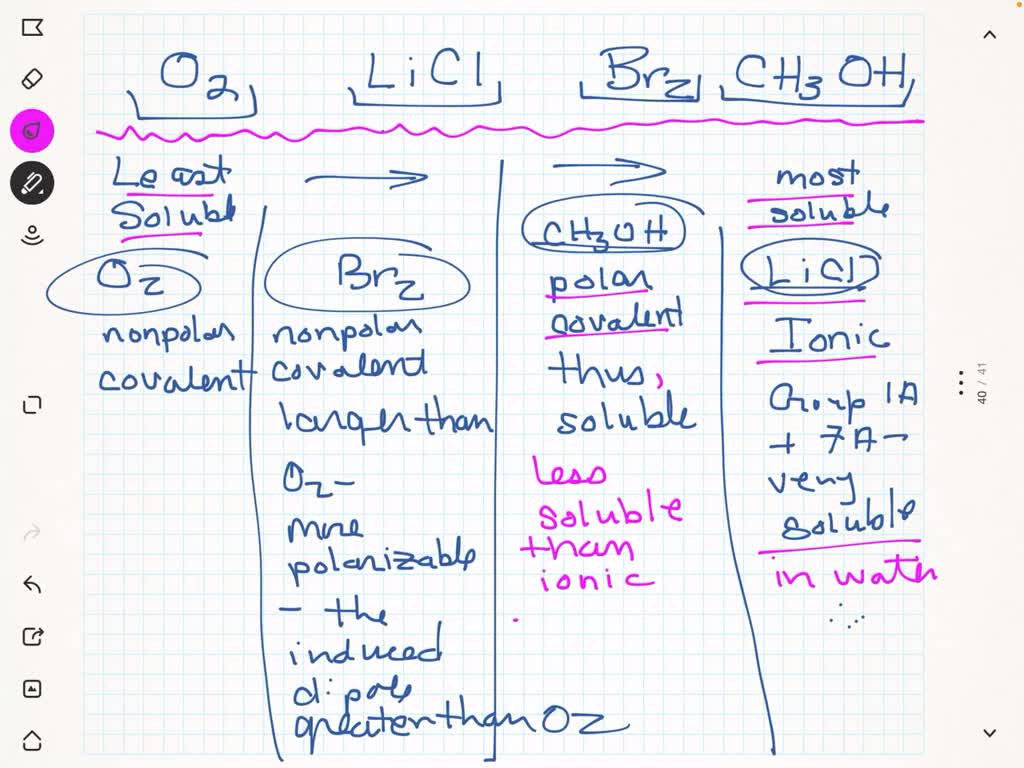 O2 LiCl Br2 CH3OH
Least
Soluble
O2
nonpolar
covalent
Br2
nonpolar
covalent
larger than
O2-
more
polarizable
- the
induced
dipole
greater than O2
CH3OH
polar
covalent
thus,
soluble
less
soluble
than
ionic
most
soluble
LiCl
Ionic
Group 1A
+ 7A-
very
soluble
in water
40 / 41